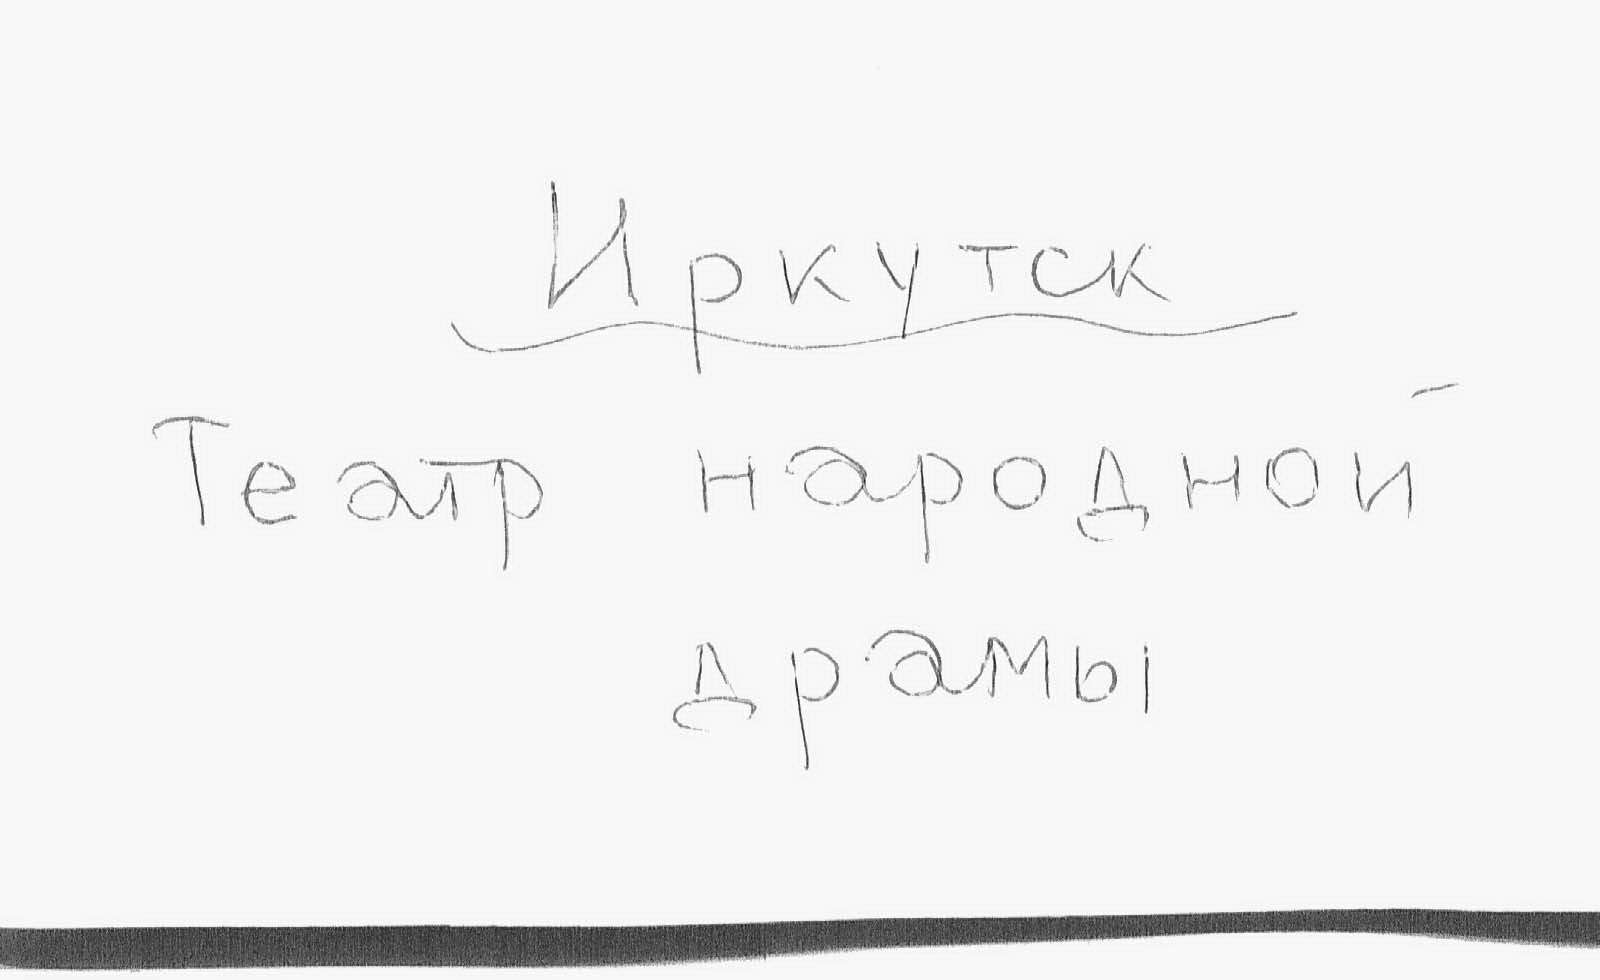 Иркутск
Театр народной
драмы